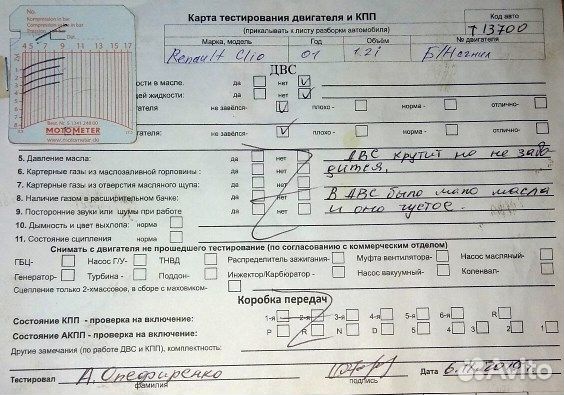 No.
Карта тестирования двигателя и КПП
(прикалывать к листу разборки автомобиля)
Код авто
т 13700
Марка, модель Год Объём № двигателя
Renault Clio 01 1.2i Б/Н
ДВС
ости в масле. да нет V
щей жидкости: да нет V
гателя не завёлся- V плохо - норма - отлично-
гателя: не завёлся- V плохо - норма - отлично-
MOTOMETER
www.motometer.de
5. Давление масла: да нет
ДВС крутит но не заво
6. Картерные газы из маслозаливной горловины : да нет
дится.
7. Картерные газы из отверстия масляного щупа: да нет
8. Наличие газом в расширительном бачке: да нет
В ДВС было мало масла
9. Посторонние звуки или шумы при работе да нет
и оно густое.
10. Дымность и цвет выхлопа: норма
11. Состояние сцепления норма
Снимать с двигателя не прошедшего тестирование (по согласованию с коммерческим отделом)
ГБЦ- Насос Г/У- ТНВД Распределитель зажигания- Муфта вентилятора- Насос масляный-
Генератор- Турбина - Поддон- Инжектор/Карбюратор - Насос вакуумный- Коленвал-
Сцепление только 2-хмассовое, в сборе с маховиком-
Коробка передач
Состояние КПП - проверка на включение: 1-я 2-я 3-я 4-я 5-я 6-я R
Состояние АКПП - проверка на включение: P R N D 5 4 3 2 1
Другие замечания (по работе ДВС и КПП), комплектность:
Тестировал А. Онефиренко Дата
фамилия подпись
Avito